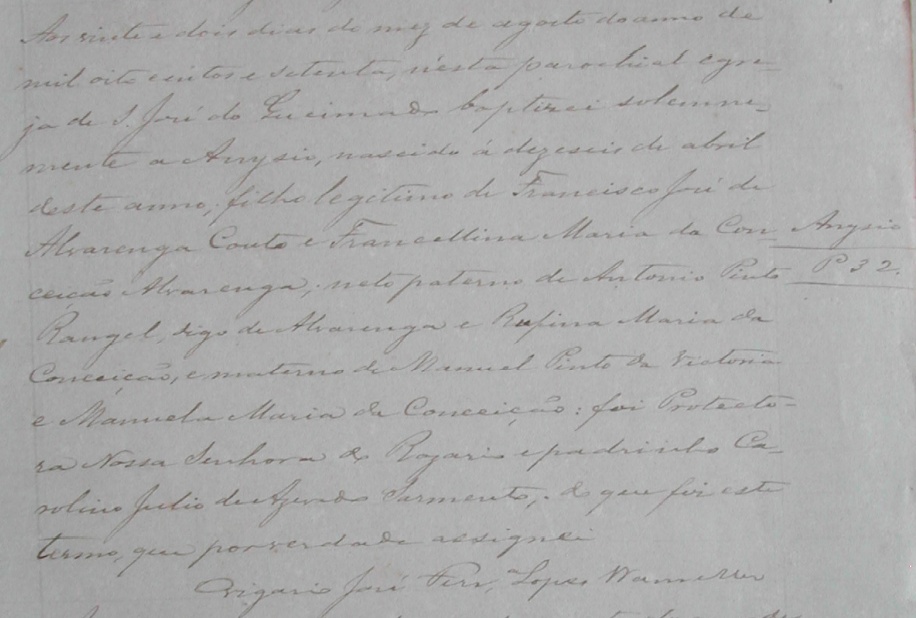 Aos vinte e dois dias do mez de agosto do anno de
mil oito centos e setenta, nesta parochial egre-
ja de S. José do Queimado baptizei solemne-
mente a Anysio, nascido á dezeseis de abril
deste anno, filho legitimo de Francisco José de
Alvarenga Couto e Francellina Maria da Con-
Anysio
ceição Alvarenga; neto paterno de Antonio Pinto
P 32.
Rangel, digo de Alvarenga e Rufina Maria da
Conceição, e materno de Manuel Pinto da Victoria
e Manuela Maria da Conceição: foi Protecto-
ra Nossa Senhora do Rozario e padrinho Ca-
rolino Julio de Azevedo Sarmento, do que fiz este
termo, que por verdade assignei
Vigario José Ferr.ª Lopes